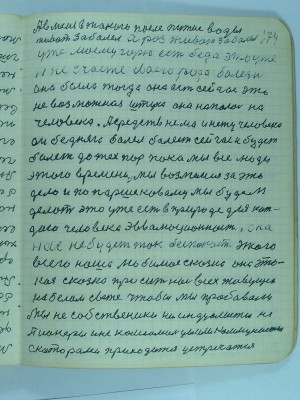 живот заболел я рос живот заболел 74
уже моему горю есть беда это уже
и не счастье своего рода болезнь
она была тогда она есть сейчас это
не возможная штука она наполог на
человека. средств нема и нету человеко
он бедняга болел болеет сейчас и будет
болеть до тех пор пока мы все люди
этого времени, мы возьмемся за это
дело и по паршековому мы будем
делать это уже есть в природе для каж-
дого человека эввомоционност. она
нас не будет так беспокоить этого
всего наша любимая сказка она та-
кая сказка просит нас всех живущих
на белом свете чтобы мы пробовали
мы не собственики ни индуалисты ни
пионеры и не комсомольцы коммунисты
с которами приходится встречатся